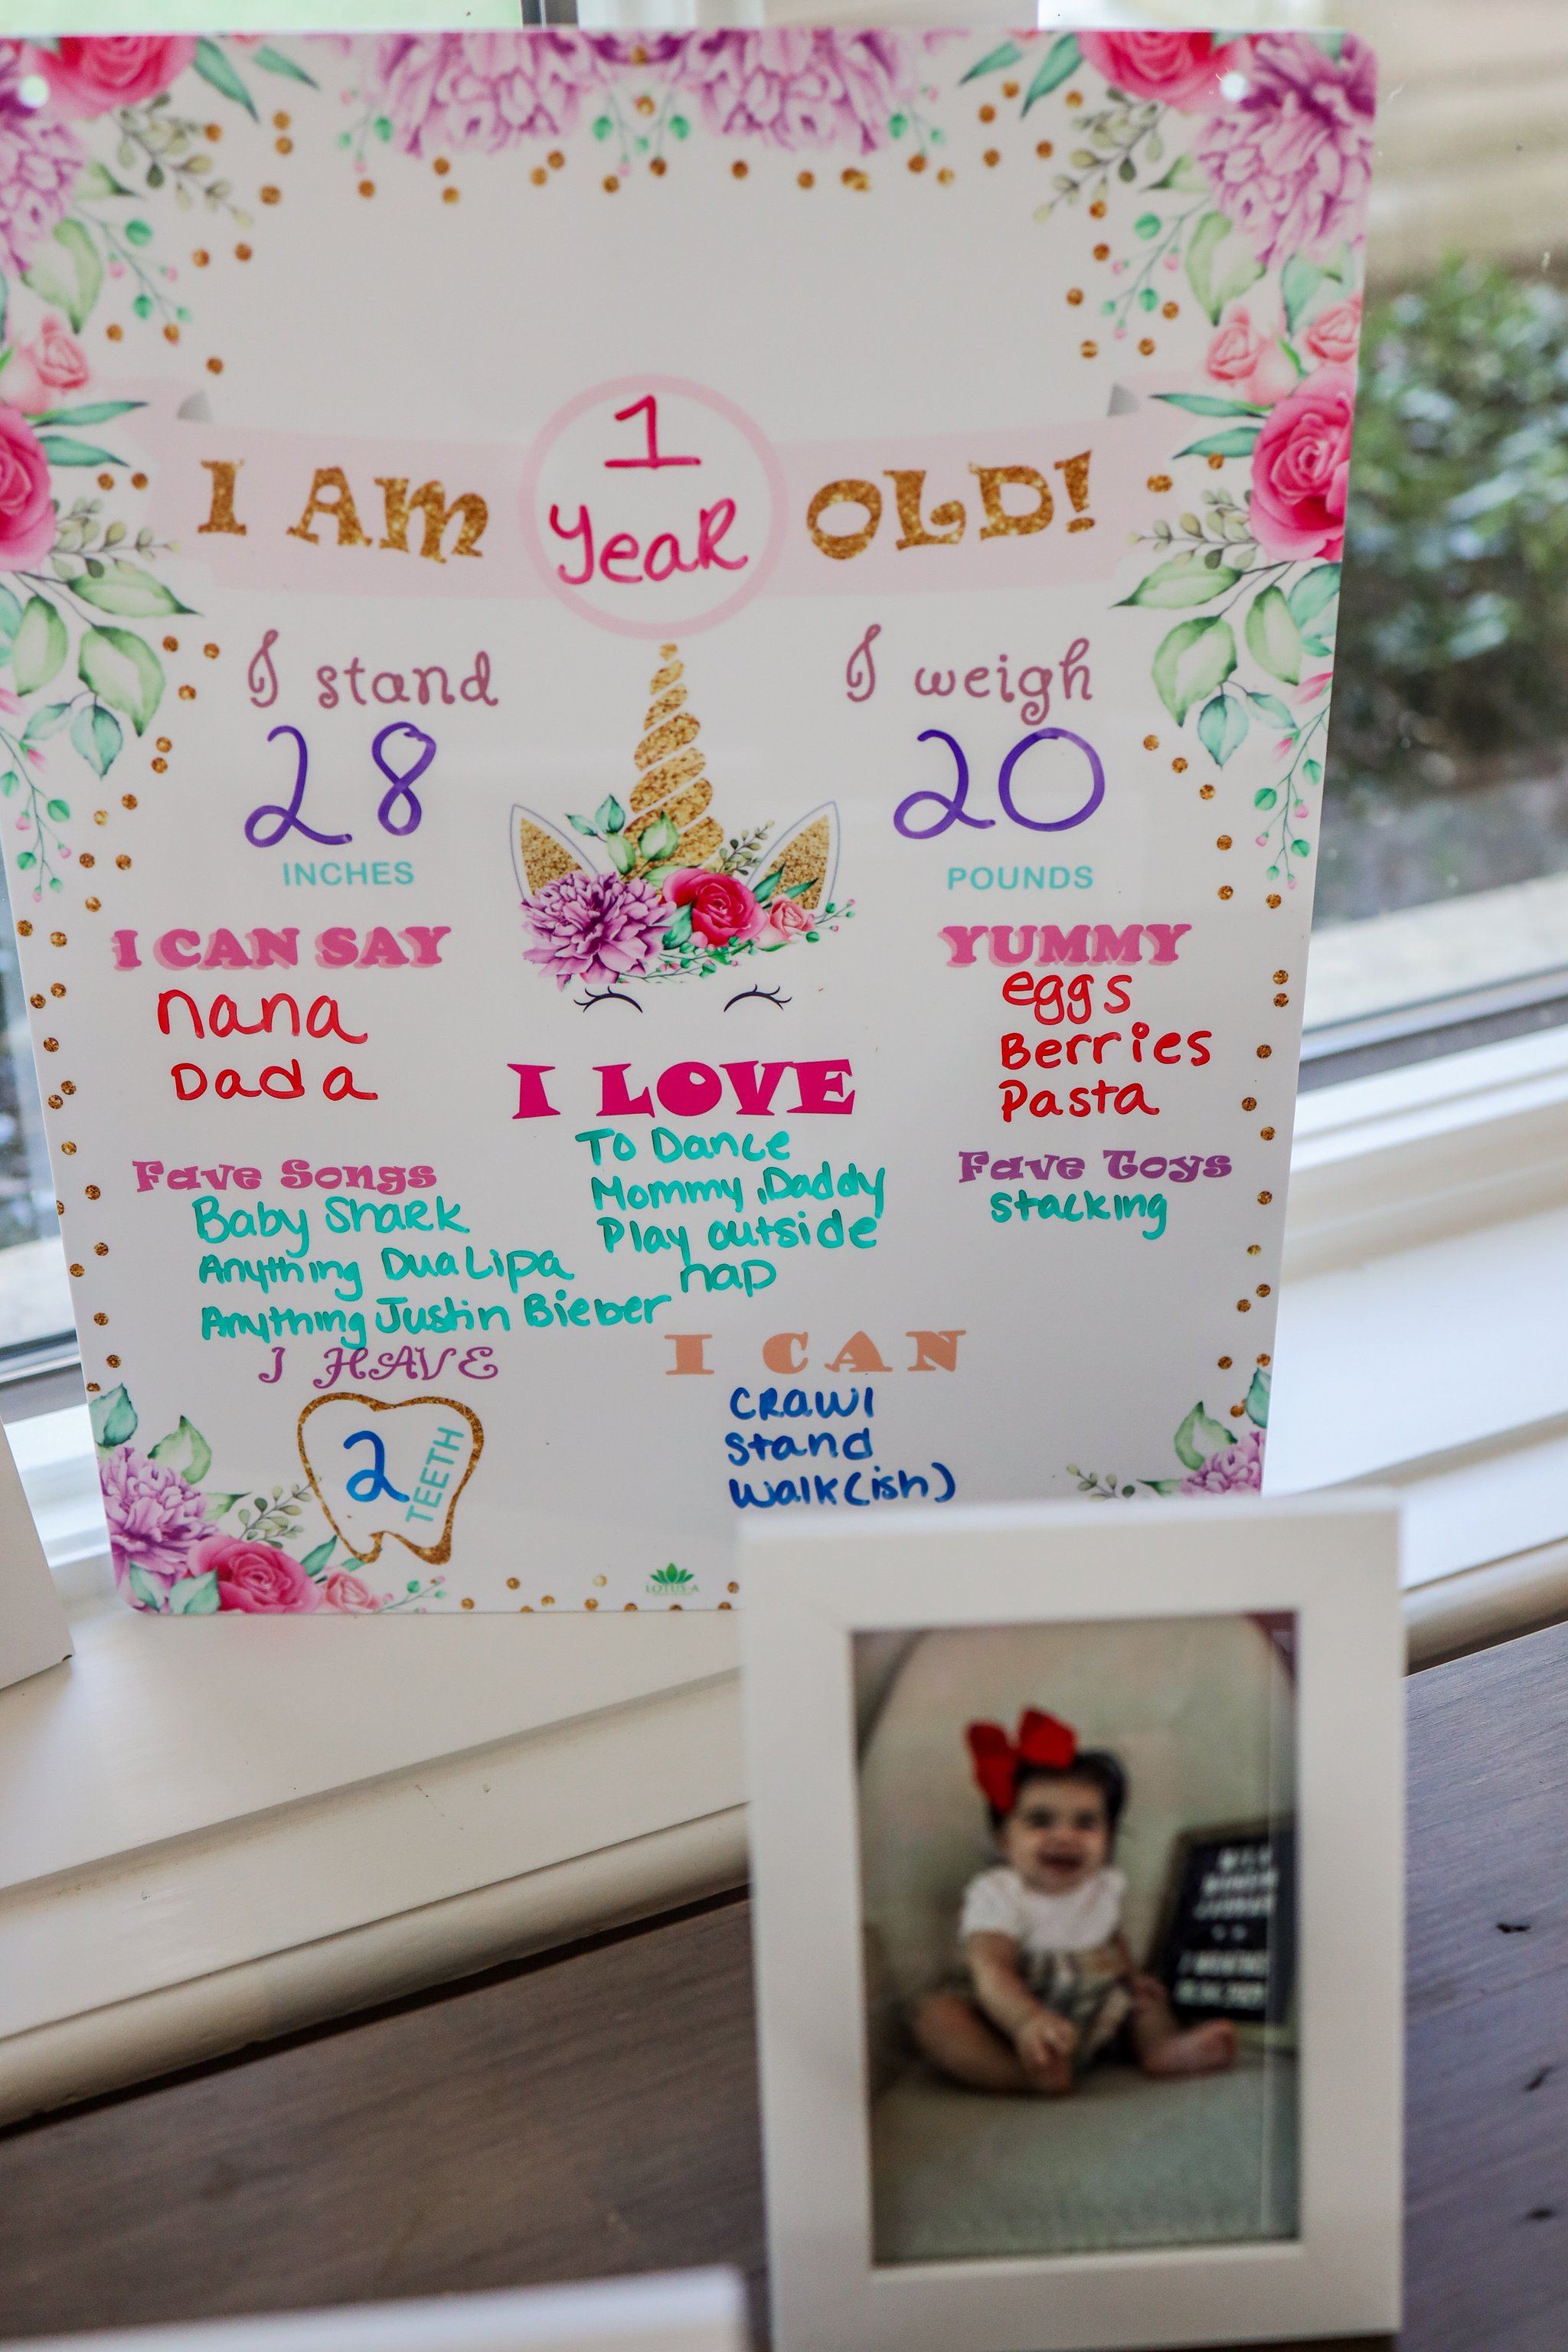 1
I AM Year OLD!
I stand
28
INCHES
I weigh
20
POUNDS
I CAN SAY
nana
Dada
YUMMY
eggs
Berries
Pasta
I LOVE
To Dance
Mommy, Daddy
Play outside
nap
Fave Songs
Baby Shark
Anything Dua Lipa
Anything Justin Bieber
Fave Toys
stacking
I HAVE
2 TEETH
I CAN
CRawl
Stand
Walk(ish)
LOTUS-A